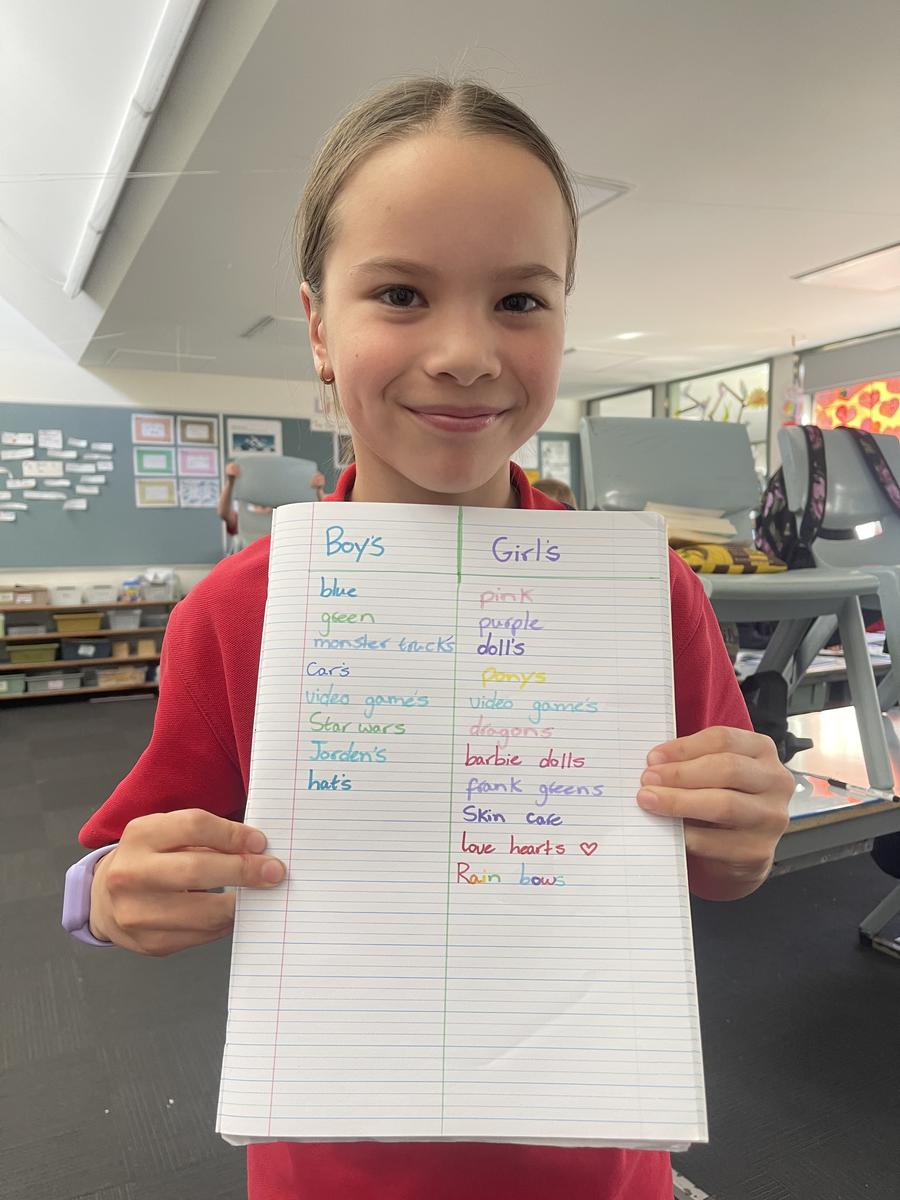 Boy's
blue
green
monster trucks
Car's
video game's
Star wars
Jorden's
hat's
Girl's
pink
purple
doll's
Ponys
video game's
dragons
barbie dolls
frank greens
Skin care
love hearts ♡
Rain bows